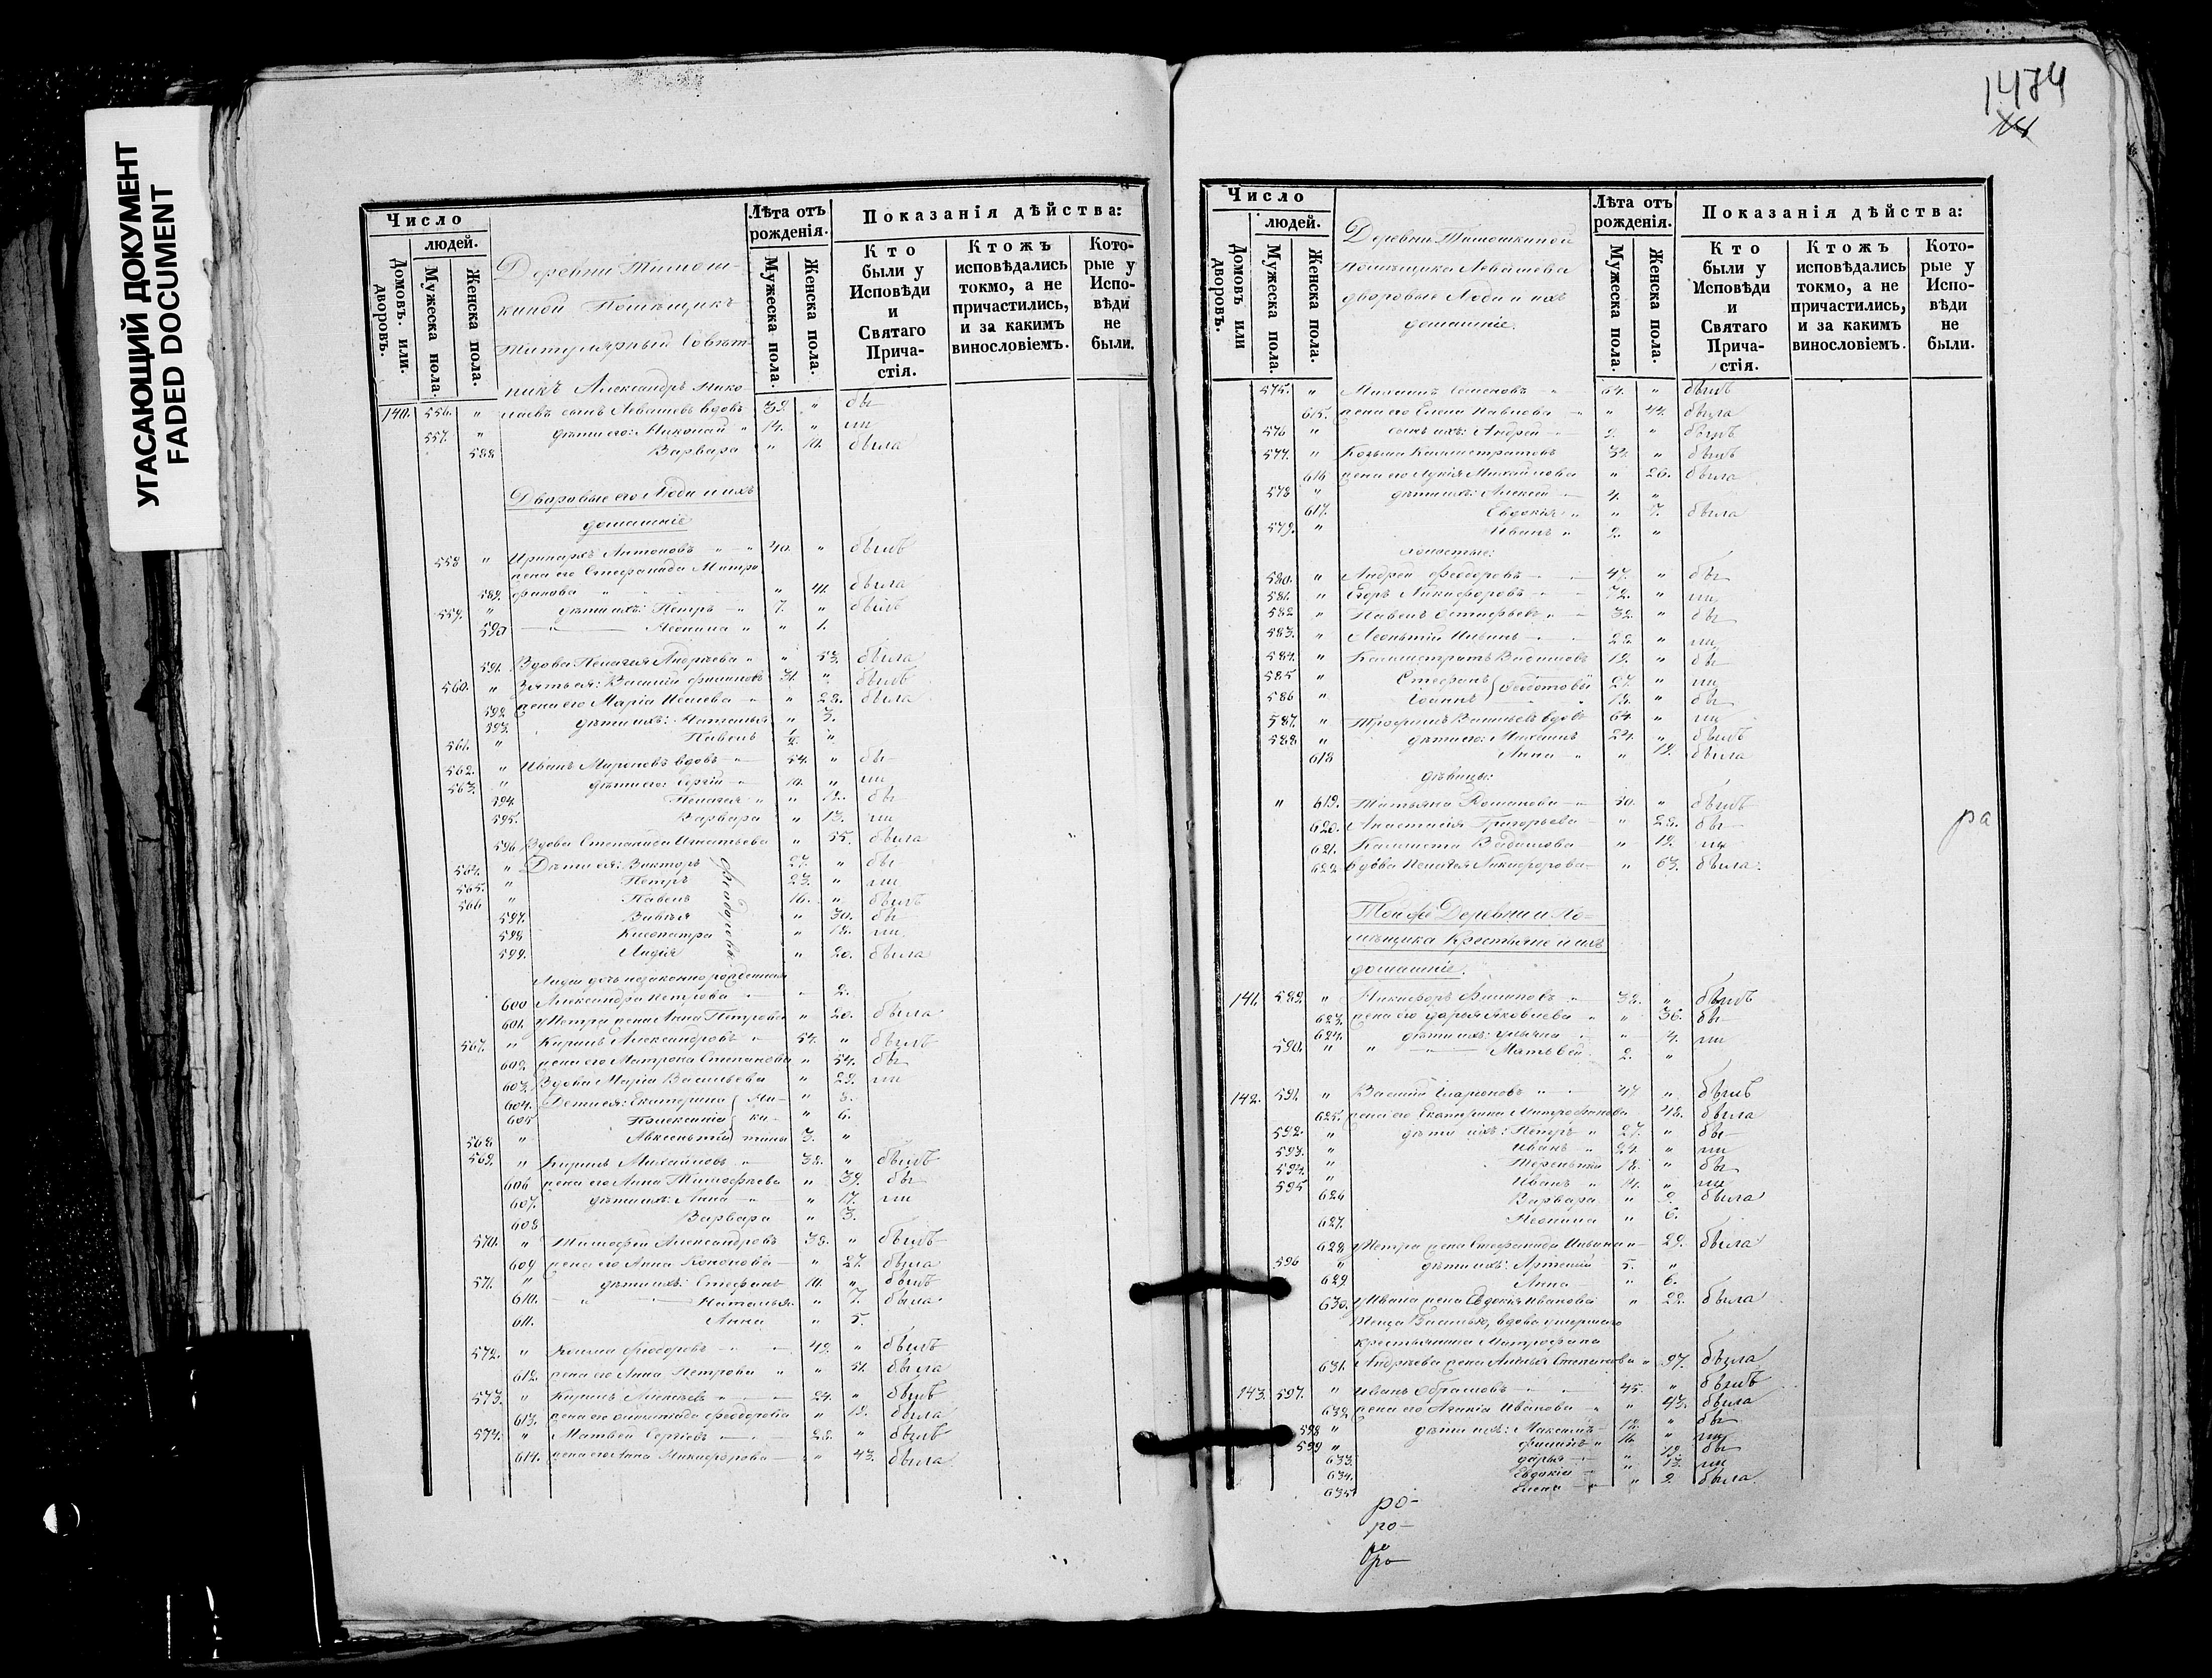 УГАСАЮЩИЙ ДОКУМЕНТ
FADED DOCUMENT
Число
людей.
Домовъ или дворовъ.
Мужеска пола.
Женска пола.
Лѣта отъ рожденія.
Мужеска пола.
Женска пола.
Показанія дѣйства:
Кто были у Исповѣди и Святаго Прича- стія.
Ктожъ исповѣдались токмо, а не причастились, и за какимъ винословіемъ.
Кото- рые у Испо- вѣди не были.
Деревни Тимош-
киной Помѣщикъ
Титулярный Совѣт-
никъ Александръ Нико
140. 556. " лаевъ сынъ Левашовъ вдовъ 39. " бы
557. " дѣти его: Николай " 14. " ли
588 Варвара " " 10. была
Дворовые его Люди и ихъ
домашніе
558 " Иринархъ Антоновъ " " 40. " былъ
жена его Стефанида Митро
589. фанова " " 41. была
559. " дѣти ихъ: Петръ " 7. " былъ
590 " Леонила " " 1.
591. Вдова Пелагея Андреева " " 53. была
560. " Зять ея: Василій Филиповъ 31. " былъ
592 жена его Марія Исаева " " 28. была
593. дѣти ихъ: Наталья " 3.
561. " Павелъ 1/2. "
562. " Иванъ Мироновъ вдовъ " 54. " бы
563. " дѣти его: Сергій " 10. " ли
594. Пелагея " " 19. бы
595. Варвара " 13. ли
596 Вдова Степанида Игнатьева " 55. была
564. " Дѣти ея: Викторъ 27. " бы
565. " Петръ 23. " ли
566 " Павелъ 16. " былъ
597. " 30. бы
598 Клеопатра " 18. ли
599. Лидія " 20. была
Лидіи дочь незаконнорожденная
600 Александра Петрова " " 2.
601. у Петра жена Анна Петрова " 20. была
567. " Кирилъ Александровъ " 54. " былъ
602. жена его Матрона Степанова " 54. бы
603. Вдова Марія Васильева " 29. ли
604. Дети ея: Екатерина Ни- " 8.
605 ки- " 6.
568 " Авксентій тины 3. "
569. " Кирилъ Михайловъ " 38. " былъ
606 жена его Анна Тимофеева " 39. бы
607. дѣти ихъ: Анна " " 17. ли
608 Варвара " 3.
570. " Тимофей Александровъ 38. " былъ
609 жена его Анна Кононова " 27. была
571. " дѣти ихъ: Стефанъ 10. " былъ
610. " Наталья " 7. была
611. Анна " 5.
572. " Козма Феодоровъ " 49. " былъ
612. жена его Анна Петрова " " 51. была
573. " Кирилъ Алексѣевъ " 24. " былъ
613. жена его Феодорова " 19. была
574. " Матвей Сергіевъ " 28. " былъ
614. жена его Анна Никифорова " 43. была
1484
Число
людей.
Домовъ или дворовъ.
Мужеска пола.
Женска пола.
Лѣта отъ рожденія.
Мужеска пола.
Женска пола.
Показанія дѣйства:
Кто были у Исповѣди и Святаго Прича- стія.
Ктожъ исповѣдались токмо, а не причастились, и за какимъ винословіемъ.
Кото- рые у Испо- вѣди не были.
Деревни Тимошкиной
помѣщика Левашева
дворовые Люди и ихъ
домашніе.
575. " Михаилъ Семеновъ " 54. " былъ
615. жена его Елена Павлова " " 44. была
576 " сынъ ихъ: Андрей 9. " былъ
577. " Козьма Каллистратовъ 32. " былъ
616 жена его Лукія Михайлова " 26. была
578 " дѣти ихъ: Алексей 4. "
617. Евдокія " " 7. была
579. " Иванъ " 2. "
холостые:
580. " Андрей Феодоровъ 47. " бы
581. " Егоръ Никифоровъ 72. " ли
582 " Павелъ Остафьевъ 32. " бы
583. " Леонтій Ильинъ 28. " ли
584. " Каллистратъ Вадимовъ 19. " бы
585 " Стефанъ Федотовы 27. " ли
586 " Іоаннъ 18. " бы
587. " Трофимъ Васильевъ вдовъ 64. " ли
588 " дѣти его: Михаилъ 24. " былъ
618 Анна " 19. была
дѣвицы:
" 619. Татьяна Романова 50. " былъ
620. Анастасія Григорьева " 28. бы
621. Каллиста Вадимова " 19. ли
622 вдова Пелагея Никифорова " 63. была.
Той же Деревни и По-
мѣщика Крестьяне и ихъ
домашніе.
141. 589. " Никифоръ Филиповъ " 38. " былъ
623. жена его Дарья Яковлева " " 36. бы
624. дѣти ихъ: Ульяна " 14. ли
590. " " Матвей 2. "
142. 591. " Василій Иларіоновъ " 47 " былъ
625. жена его Екатерина Митрофанова 48. была
592. " дѣти ихъ: Петръ " 27. " бы
593. " Иванъ " 24. " ли
594. " Терентій 18. " бы
595 " Иванъ " 14. " ли
626 Варвара " 9. была
627. Леонила " 6.
628 у Петра жена Стефанида Ильина " 29. была
596 " дѣти ихъ: Артемій 5. "
629 Анна " 6.
630. у Ивана жена Евдокія Иванова " 22. была
Теща Василью, вдова умершаго
крестьянина Митрофана
631. Андреева жена Степанова " 97. была
143. 597. " Иванъ Абрамовъ 45. " былъ
632 жена его Агапія Иванова " " 43. была
598 " дѣти ихъ: Максимъ 18. " бы
599 " Филипъ " 16. " ли
633. Дарья " 19. бы
634. Евдокія " 13. ли
635. Елена " 9. была
ра
ро-
ро-
ро